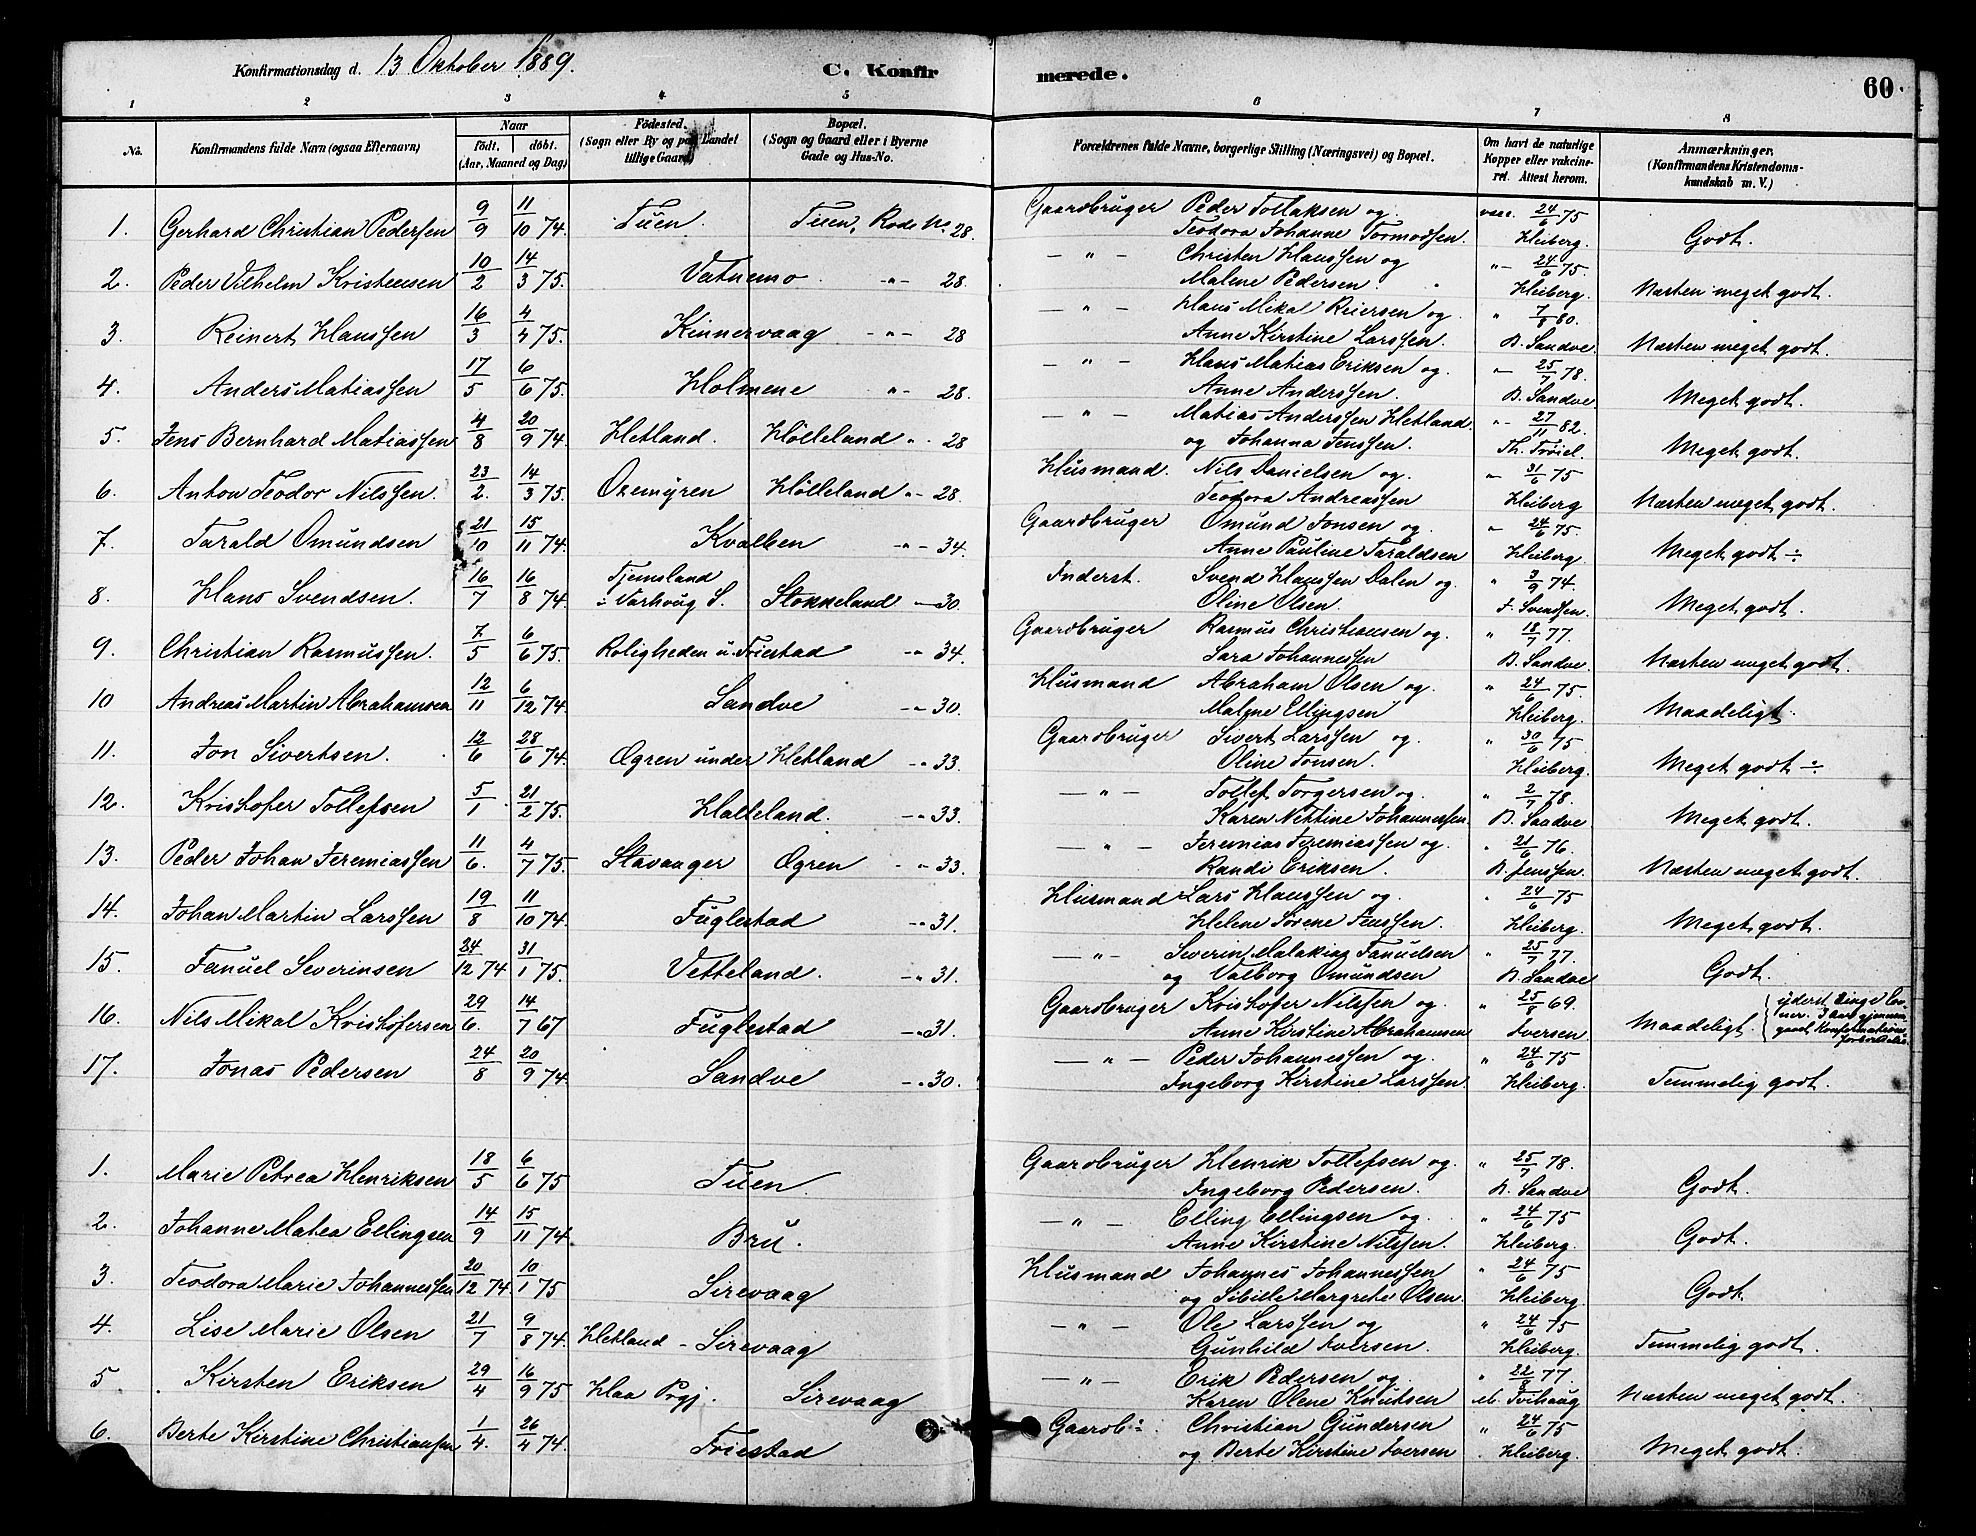 Konfirmationsdag d. 13 Oktober 1889. C. Konfirmerede. 60.
1 2 3 4 5 6 7 8
No. Konfirmandens fulde Navn (ogsaa Efternavn) Naar født. døbt. (Aar, Maaned og Dag) Fødested. (Sogn eller By og paa Landet tillige Gaard) Bopæl. (Sogn og Gaard eller i Byerne Gade og Hus-No. Forældrenes fulde Navne, borgerlige Stilling (Næringsvei) og Bopæl. Om havt de naturlige Kopper eller vakcineret. Attest herom. Anmærkninger. (Konfirmandens Kristendomskundskab m. V.)
1. Gerhard Christian Pedersen 9/9 11/10 74. Tuen. Tuen, Rode No 28. Gaardbruger Peder Tollaksen og Teodora Johanne Tormodsen. vacc. 24/6 75 Heiberg. Godt.
2. Peder Vilhelm Kristensen 10/2 14/3 75. Vatnemo -"- 28. -"- Christen Hanssen og Malene Pedersen. "- 24/6 75. Heiberg. Næsten meget godt.
3. Reinert Hanssen 16/3 4/4 75. Kinnervaag -"- 28 -"- Hans Mikal Reiersen og Anne Kirstine Larssen. " 7/8 80. B. Sandve Næsten meget godt.
4. Anders Matiassen 17/5 6/6 75. Holmene "- 28. -"- Hans Matias Eriksen og Anne Anderssen. "- 25/7 78. B. Sandve Meget godt.
5. Jens Bernhard Matiassen 4/8 20/9 74. Hetland. Hölleland "- 28 -"- Matias Anderssen Hetland og Johanna Jenssen. "- 27/11 82. Th. Tröiel. Meget godt.
6. Anton Teodor Nilssen. 23/2. 14/3 75. Oremyren Hölleland "- 28. Husmand. Nils Danielsen og Teodora Andreassen "- 31/6 75 Heiberg Næsten meget godt.
7. Tarald Omundsen 21/10 15/11 74. Kvalben "- 34. Gaardbruger Omund Jonsen og Anne Pauline Taraldsen " 24/6 75. Heiberg. Meget godt ÷
8. Hans Svendsen. 16/7 16/8 74. Tjemsland : Varhoug S. Stokkeland -" 30. Inderst. Svend Hanssen Dalen og Oline Olsen. " 3/9 74. F. Svendsen. Meget godt.
9. Christian Rasmussen. 7/5 6/6 75. Roligheden u. Friestad "- 34. Gaardbruger Rasmus Christiansen og Sara Johannessen " 18/7 77. B. Sandve Næsten meget godt.
10 Andreas Martin Abrahamsen 12/11 6/12 74. Sandve -" 30. Husmand Abraham Olsen og Malene Ellingsen " 24/6 75 Heiberg. Maadeligt.
11. Jon Sivertsen. 12/6 28/6 74. Ogren under Hetland -" 33. Gaardbruger Sivert Larssen og Oline Jonsen. " 30/6 75 Heiberg. Meget godt ÷
12. Kristofer Tollefsen 5/1. 21/2 75. Hölleland. -" 33. -"- Tollef Torgersen og Karen Nettine Johannessen. " 2/7 78. B. Sandve Meget godt.
13. Peder Johan Jeremiassen 11/6. 4/7 75. Stavanger Ogren -" 33. -"- Jeremias Jeremiassen og Randi Eriksen. " 21/6 76. B. Jenssen. Næsten meget godt.
14. Johan Martin Larssen 19/8 11/10 74. Fuglestad -" 31. Husmand Lars Hanssen og Helene Sörene Jenssen. " 24/6 75 Heiberg. Meget godt.
15. Fanuel Severinsen 24/12 74 31/1 75. Vetteland. -" 31. -"- Severin Malakias Fanuelsen og Valborg Omundsen " 25/7 77. B. Sandve Godt.
16. Nils Mikal Kristofersen 29/6. 14/7 67 Fuglestad -" 31. Gaardbruger Kristofer Nilssen og Anne Kirstine Abrahamsen " 25/8 69. Iversen. Maadeligt. yderst ringe Evner. 3 Aar gjennemgaaet Konfirmationsforberedelse
17. Jonas Pedersen 24/8 20/9 74. Sandve -" 30. -"- Peder Johannessen og Ingeborg Kirstine Larssen. " 24/6 75 Heiberg. Temmelig godt.
1. Marie Petrea Henriksen 18/5 6/6 75 Tuen. Gaardbruger Henrik Tollefsen og Ingeborg Pedersen. " 25/7 78. B. Sandve Godt.
2. Johanne Matea Ellingsen 14/9 15/11 74. Bru. -"- Elling Ellingsen og Anne Kirstine Nilssen. " 24/6 75 Heiberg. Godt.
3. Teodora Marie Johannessen 20/12 74 10/1 75 Sirevaag Husmand Johannes Johannessen og Sibille Margrete Olsen. " 24/6 75 Heiberg. Godt.
4. Lise Marie Olsen 21/7 9/8 74. Hetland - Sirevaag -"- Ole Larssen og Gunhild Iversen. " 24/6 75 Heiberg. Temmelig godt.
5 Kirsten Eriksen 29/4 16/9 75 Haa Prgj. Sirevaag -"- Erik Pedersen og Karen Olene Knutsen " 22/8 77. Næsten meget godt.
6. Berte Kirstine Christiansen 1/4. 26/4 74. Friestad Gaardb: Christian Gundersen og Berte Kirstine Iversen " 24/6 75 Heiberg. Meget godt.